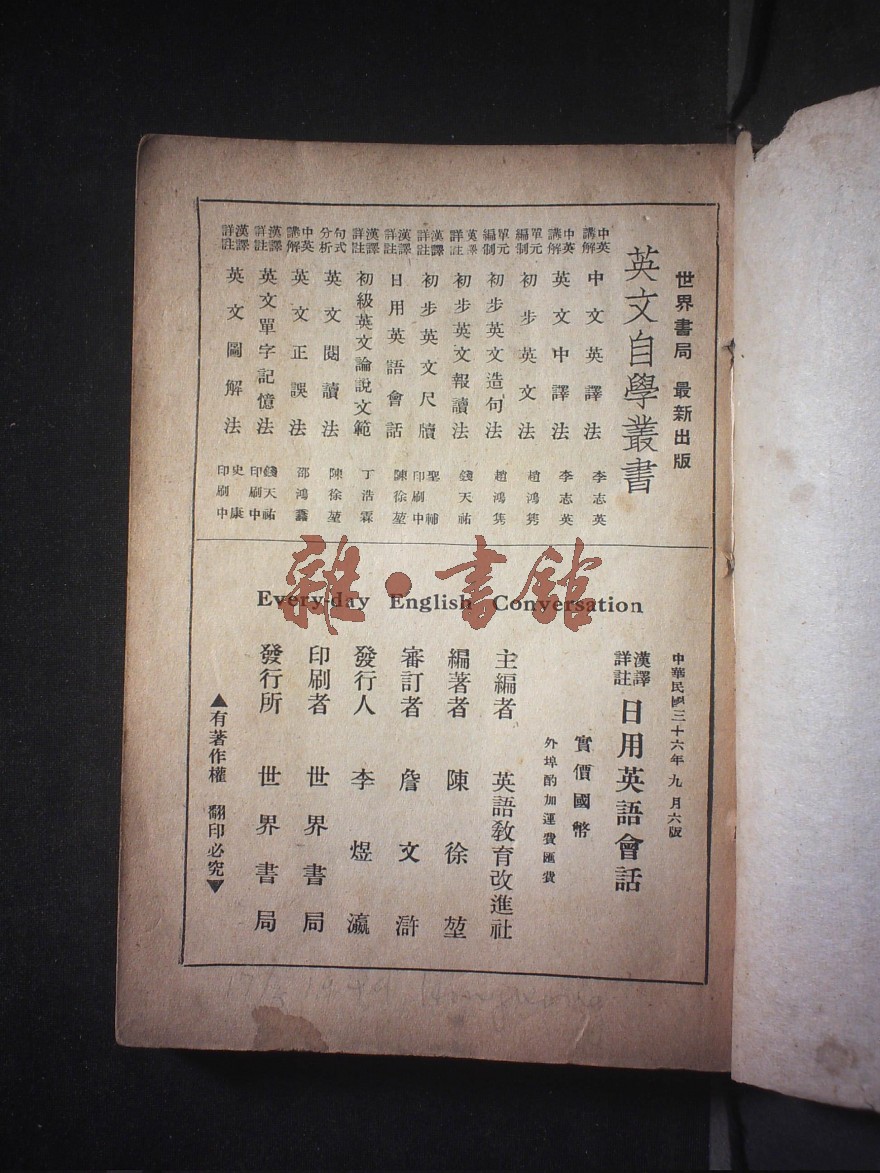 世界書局 最新出版
英文自學叢書
中英講解 中文英譯法 李志英
中英講解 英文中譯法 李志英
單元編制 初步英文法 趙鴻雋
單元編制 初步英文造句法 趙鴻雋
英譯詳註 初步英文報讀法 錢天祐
漢譯詳註 初步英文尺牘 聖補 印刷中
漢譯詳註 日用英語會話 陳徐堃
漢譯詳註 初級英文論說文範 丁浩霖
句式分析 英文閱讀法 陳徐堃
中英講解 英文正誤法 邵鴻鑫
漢譯詳註 英文單字記憶法 錢天祐 印刷中
漢譯詳註 英文圖解法 史康 印刷中
Every-day English Conversation
中華民國三十六年九月六版
漢譯詳註 日用英語會話
實價國幣
外埠酌加運費匯費
主編者 英語教育改進社
編著者 陳徐堃
審訂者 詹文滸
發行人 李煜瀛
印刷者 世界書局
發行所 世界書局
▲有著作權 翻印必究▼
雜·書館